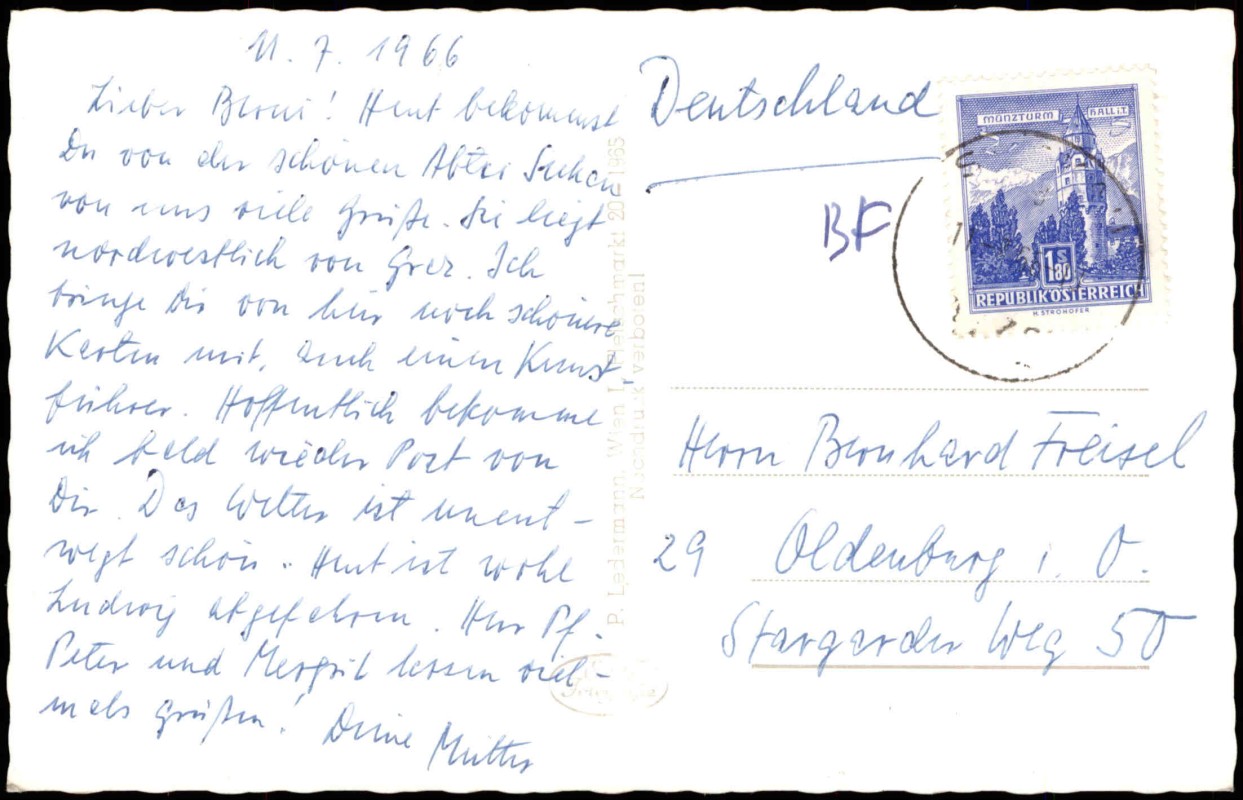 11. 7. 1966
Lieber Berni! Heut bekommst
Du von der schönen Abtei Seckau
von uns viele Grüße. Sie liegt
nordwestlich von Graz. Ich
bringe Dir von hier noch schönere
Karten mit, auch einen Kunst-
führer. Hoffentlich bekomme
ich bald wieder Post von
Dir. Das Wetter ist unent-
wegt schön. Heut ist wohl
Ludwig abgefahren. Herr Pf.
Peter und Margrit lassen viel-
mals grüßen! Deine Mutter
P. Ledermann, Wien I, Fleischmarkt 20 e 1965
Nachdruck verboten!
Deutschland
BF
MÜNZTURM HALL i.T.
1 S 80
REPUBLIK ÖSTERREICH
H. STROHOFER
Herrn Bernhard Freisel
29 Oldenburg i. O.
Stargarder Weg 50